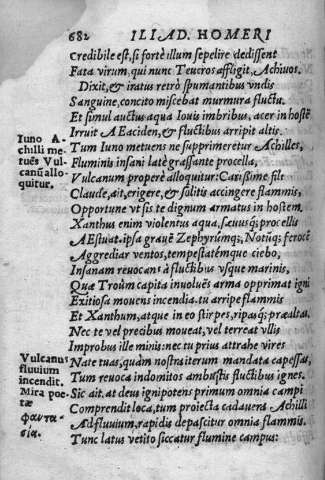 682 ILIAD. HOMERI
Credibile est, si fortè illum sepelire dedissent
Fata virum, qui nunc Teucros affligit, Achiuos.
Dixit, & iratus retrò spumantibus vndis
Sanguine, concito miscebat murmura fluctu.
Et simul auctus aqua Iouis imbribus, acer in hostē
Irruit AEaciden, & fluctibus arripit altis.
Iuno A-
chilli me-
tuēs Vul-
canū allo-
quitur.
Tum Iuno metuens ne supprimeretur Achilles,
Fluminis insani latè grassante procella,
Vulcanum properè alloquitur: Carissime fili
Claude, ait, erige, & solitis accingere flammis,
Opportune vt sis te dignum armatus in hostem.
Xanthus enim violentus aqua, sæuusq́; procellis
AEstuat. ipsa grauē Zephyrumq́;, Notūq́; ferocē
Aggrediar ventos, tempestatémque ciebo,
Insanam reuocans à fluctibus vsque marinis,
Quæ Troûm capita inuoluēs arma opprimat igni
Exitiosa mouens incendia. tu arripe flammis
Et Xanthum, atque in eo stirpes, ripasq́; præaltas.
Nec te vel precibus moueat, vel terreat vllis
Improbus ille minis: nec tu prius attrahe vires
Vulcanus
fluuium
incendit.
Mira poe-
tæ
φαντα-
σία.
Nate tuas, quàm nostra iterum mandata capessas,
Tum reuoca indomitos ambustis fluctibus ignes.
Sic ait. at deus ignipotens primum omnia campi
Comprendit loca, tum proiecta cadauera Achilli
Ad fluuium, rapidis depascitur omnia flammis.
Tunc latus vetito siccatur flumine campus: